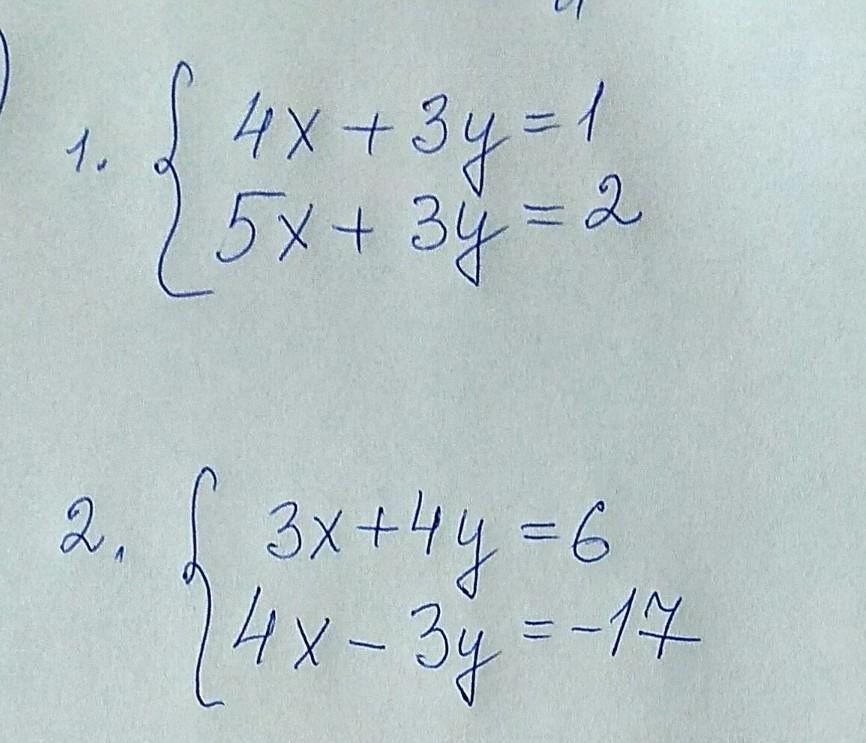 1. { 4x + 3y = 1
5x + 3y = 2
2. { 3x + 4y = 6
4x - 3y = -17